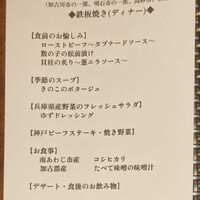 （加古川市の一部、明石市の一部、
◆鉄板焼き(ディナー)◆
【食前のお愉しみ】
ローストビーフ～タプナードソース～
数の子の松前漬け
貝柱の炙り～葱ニラソース～
【季節のスープ】
きのこのポタージュ
【兵庫県産野菜のフレッシュサラダ】
ゆずドレッシング
【神戸ビーフステーキ・焼き野菜】
【お食事】
南あわじ市産　コシヒカリ
加古郡産　たべて味噌の味噌汁
【デザート・食後のお飲み物】